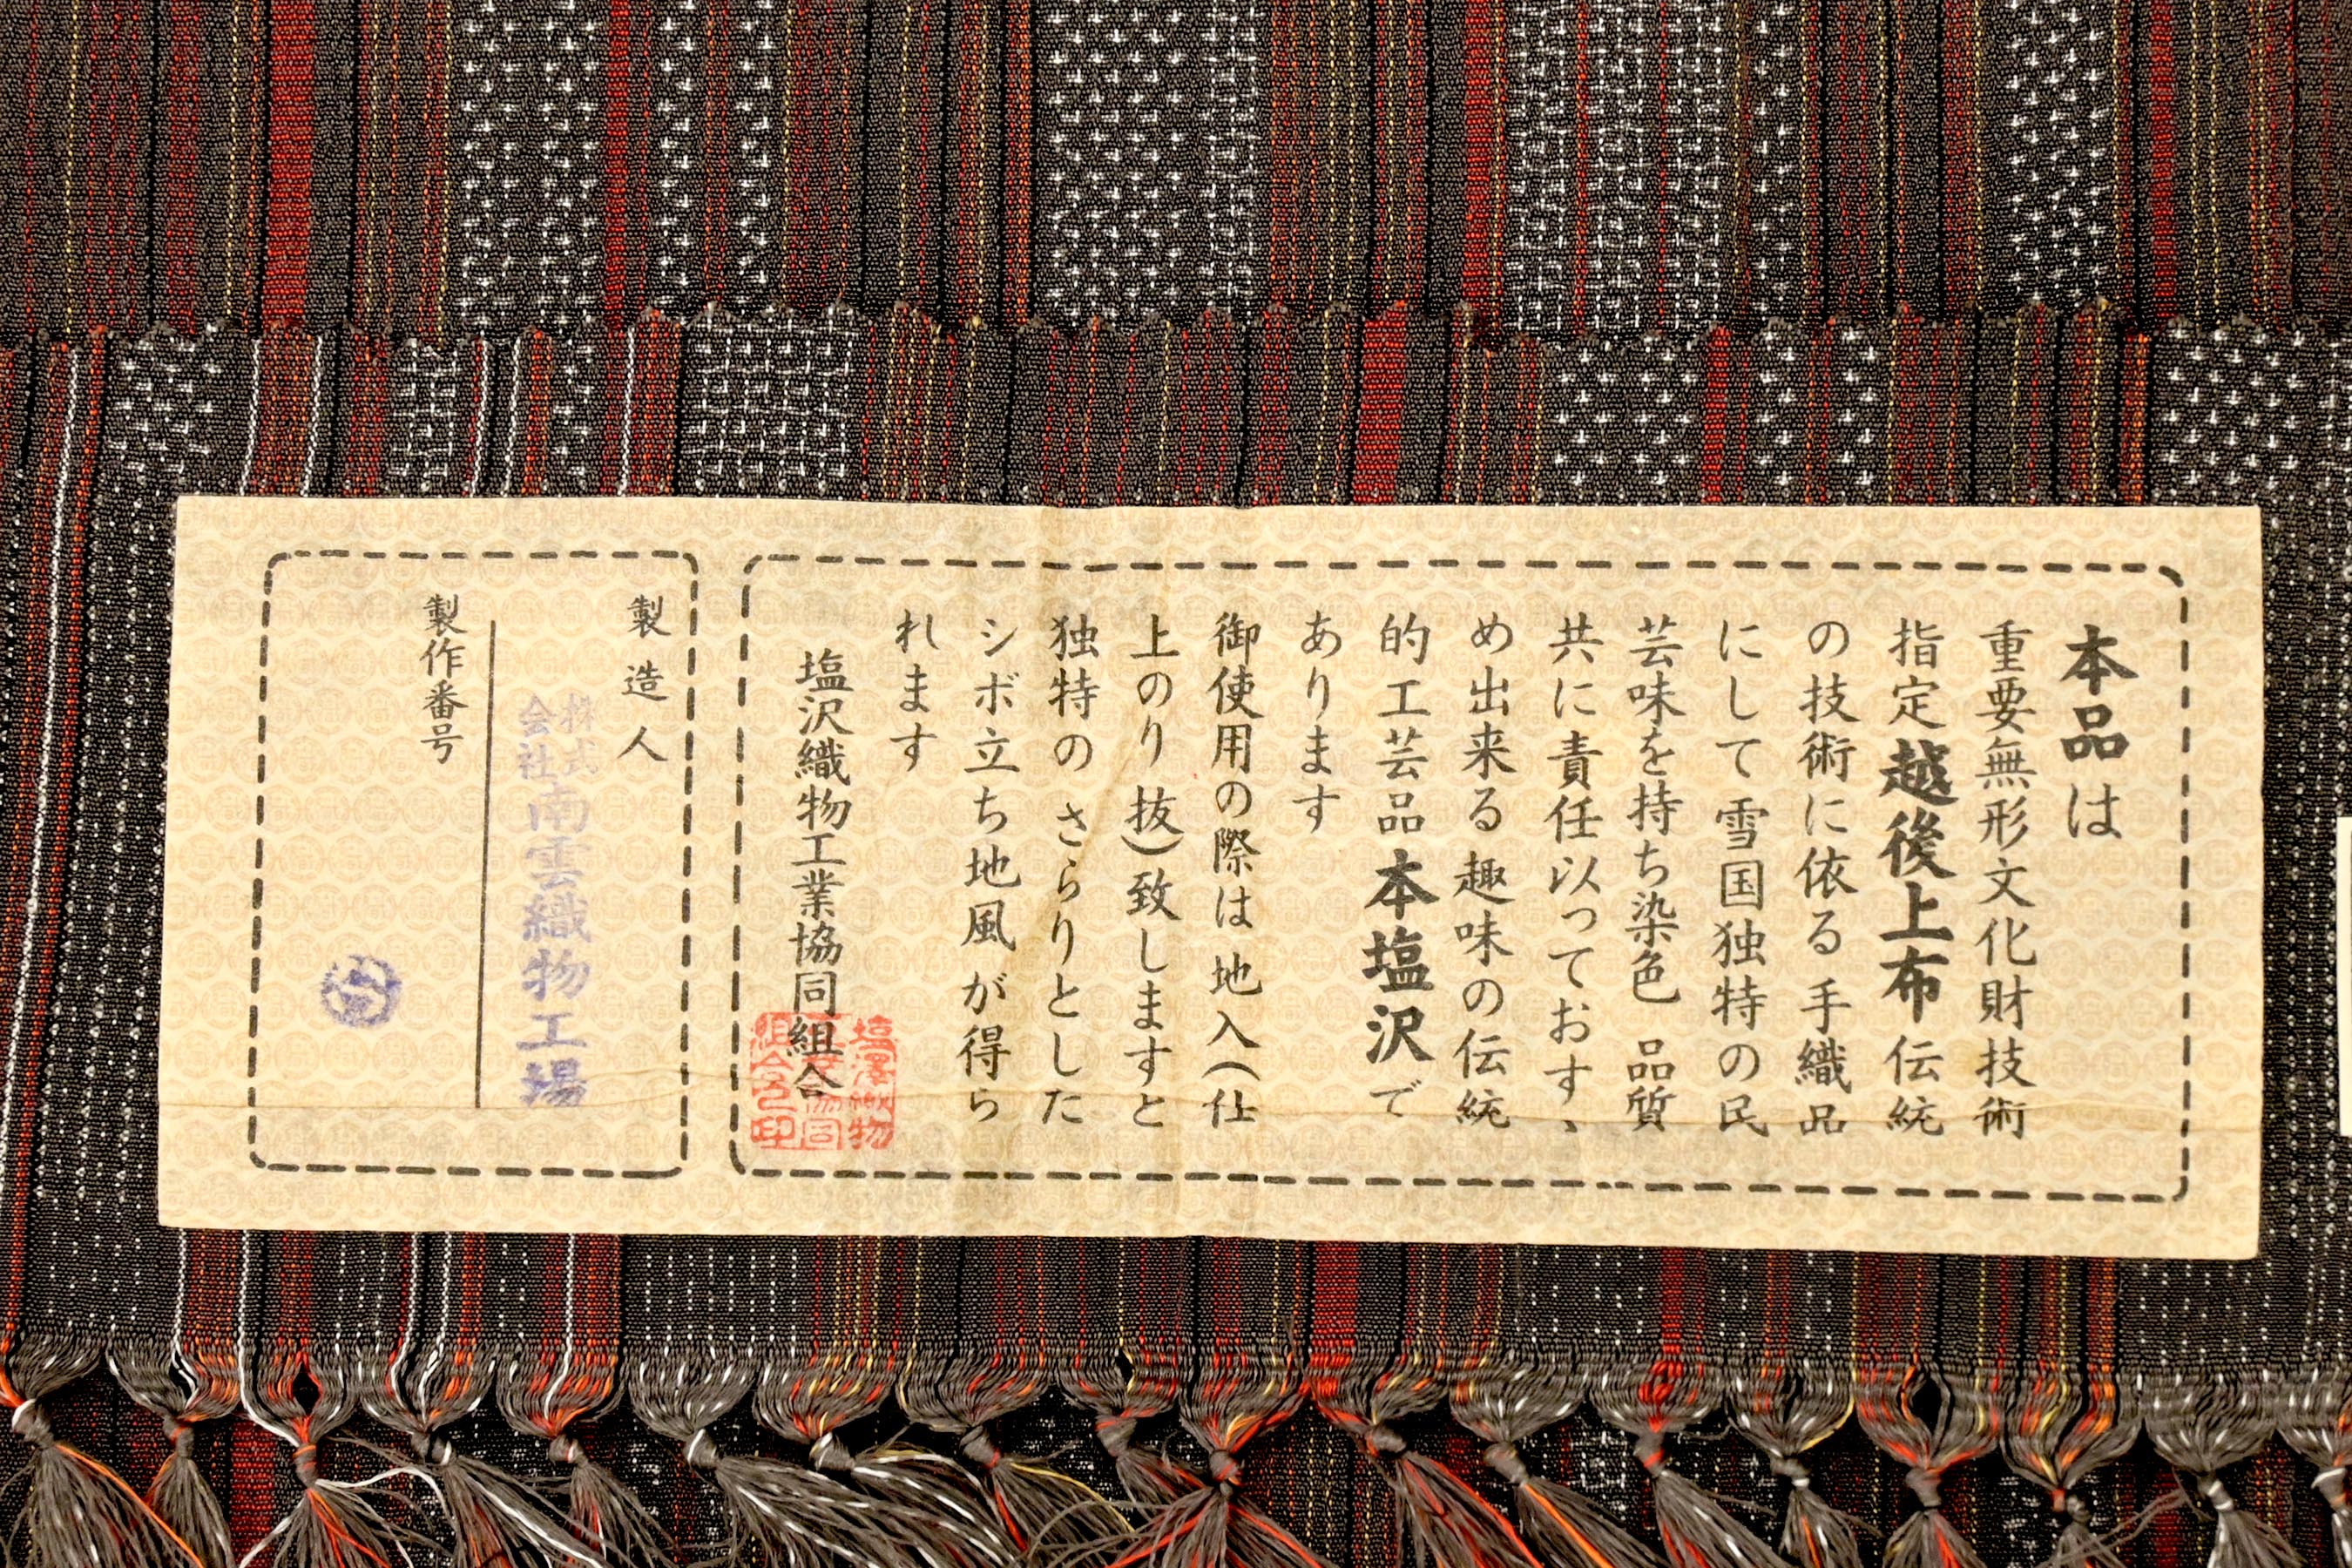 本品は
重要無形文化財技術
指定越後上布伝統
の技術に依る手織品
にして雪国独特の民
芸味を持ち染色 品質
共に責任以っておすゝ
め出来る趣味の伝統
的工芸品本塩沢で
あります
御使用の際は地入(仕
上のり抜)致しますと
独特の さらりとした
シボ立ち地風が得ら
れます
塩沢織物工業協同組合
塩澤織物
工業協同
組合之印
製造人
株式会社南雲織物工場
製作番号